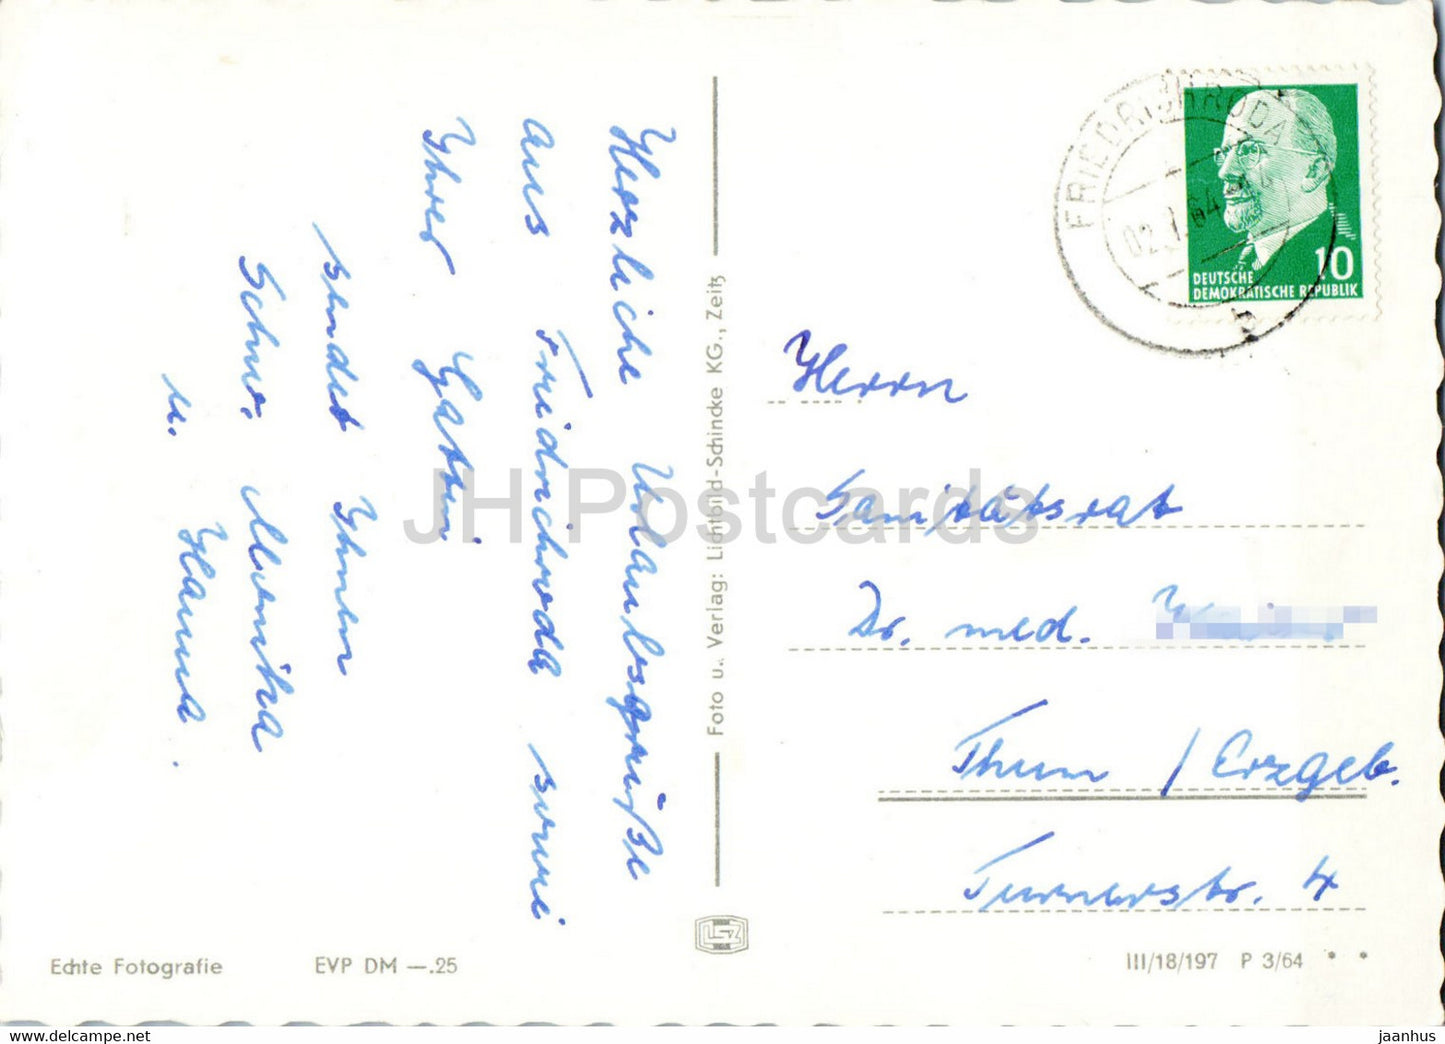 Herzliche Urlaubsgrüße
aus Friedrichroda sowie
Ihrer Gattin
sendet Ihnen
Schw. Monika
u. Hanna.
Foto u. Verlag: Lichtbild-Schincke KG., Zeitz
FRIEDRICHRODA
02.
64
10
DEUTSCHE
DEMOKRATISCHE REPUBLIK
Herrn
Sanitätsrat
Dr. med.
Thum / Erzgeb.
Turnerstr. 4
Echte Fotografie
EVP DM —.25
III/18/197 P 3/64 * *
JH Postcards
https://www.delcampe.net
jaanhus